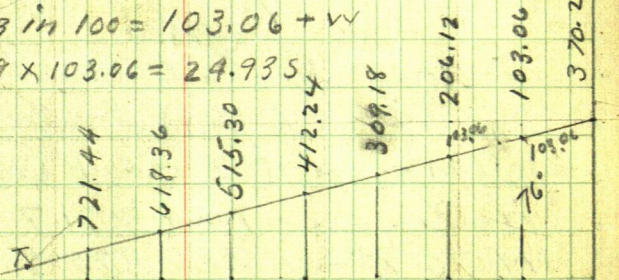 in 100 = 103.06 +
9 X 103.06 = 24.935
721.44
618.36
515.30
412.24
309.18
206.12
103.06
370.2
103.06
103.06
76°